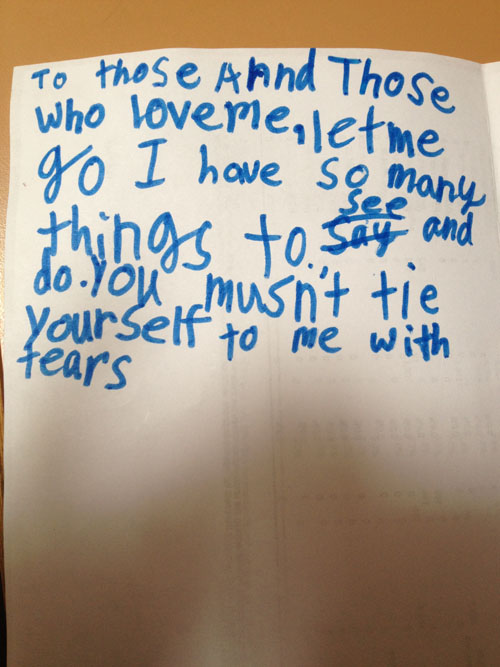 To those Annd Those
who love me, let me
go I have so many
things to see and
do. You musn't tie
yourself to me with
tears